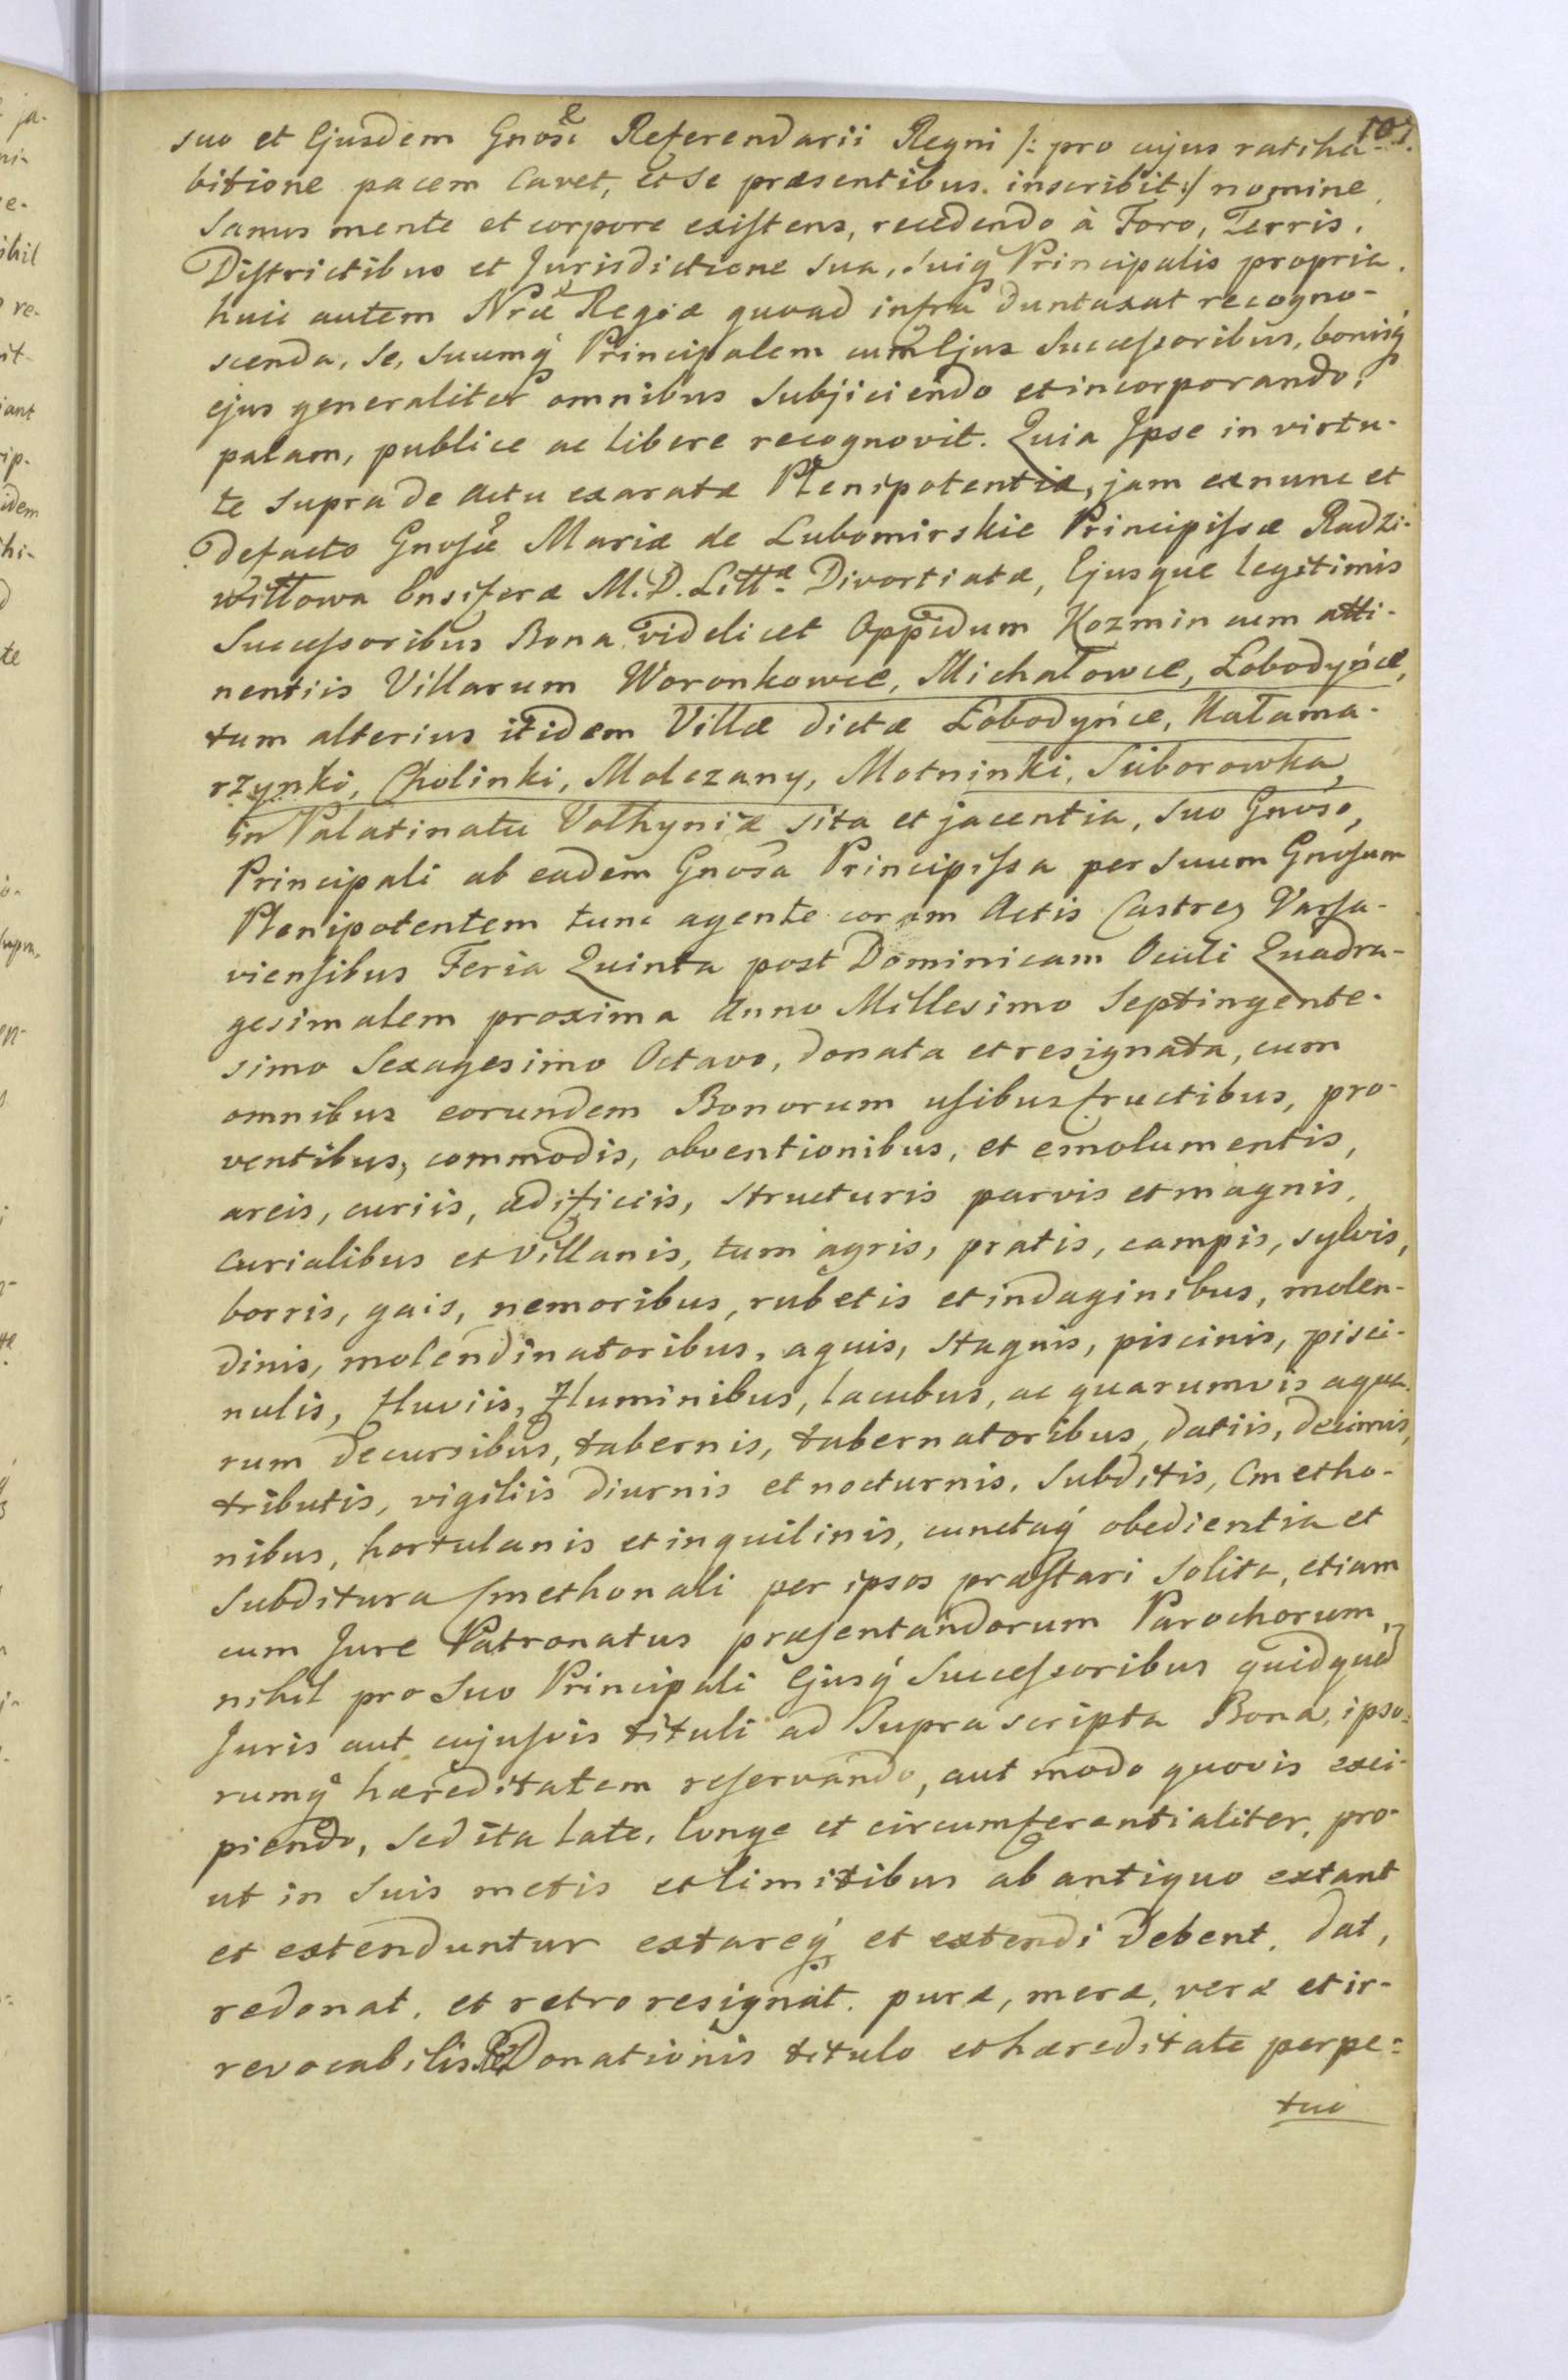 107.
suo et Ejusdem Gnosi Referendarii Regni /: pro cujus ratiha-
bitione pacem Cavet, et Se præsentibus inscribit :/ nomine,
Sanus mente et corpore existens, recedendo à Foro, Terris,
Districtibus et Jurisdictione sua, Suiq́ Principalis propria,
huic autem Nræ Regiæ quoad infra duntaxat recogno-
scenda, Se, Suumq́ Principalem cum Ejus Successoribus, bonisq́
ejus generaliter omnibus Subjiciendo et incorporando,
palam, publice ac libere recognovit. Quia Ipse in virtu-
te Supra de Actu exaratæ Plenipotentiæ, jam exnunc et
defacto Gnosæ Mariæ de Lubomirskie Principissæ Radzi-
wiłłowa Ensiferæ M. D. Littæ Divortiatæ, Ejusque legitimis
Successoribus Bona videlicet Oppidum Kozmin cum atti-
nentiis Villarum Woronkowce, Michałowce, Łobodyńce,
tum alterius itidem Villæ dictæ Łobodyńce, Kałama-
rzynki, Cholinki, Molczany, Motninki, Suborowka,
in Palatinatu Volhyniæ sita et jacentia, suo Gnoso,
Principali ab eadem Gnosa Principissa per Suum Gnosum
Plenipotentem tunc agente coram Actis Castren Varsa-
viensibus Feria Quinta post Dominicam Oculi Quadra-
gesimalem proxima Anno Millesimo Septingente-
simo Sexagesimo Octavo, donata et resignata, cum
omnibus eorundem Bonorum usibus fructibus, pro-
ventibus, commodis, obventionibus, et emolumentis,
arcis, curiis, ædificiis, Structuris parvis et magnis,
Curialibus et Villanis, tum agris, pratis, campis, sylvis,
borris, gais, nemoribus, rubetis et indaginibus, molen-
dinis, molendinatoribus, aquis, Stagnis, piscinis, pisci-
nulis, fluviis, Fluminibus, lacubus, ac quarumvis aqua-
rum decursibus, tabernis, tabernatoribus, datiis, decimis,
tributis, vigiliis diurnis et nocturnis, Subditis, Cmetho-
nibus, hortulanis et inquilinis, cunctaq́ obedientia et
Subditura Cmethonali per ipsos præstari Solita, etiam
cum Jure Patronatus præsentandorum Parochorum,
nihil pro Suo Principali Ejusq́ Successoribus quidquid
Juris aut cujusvis tituli ad Supra scripta Bona, ipso-
rumq́ hæreditatem reservando, aut modo quovis exci-
piendo, Sed ita late, longe et circumferentialiter, pro-
ut in Suis metis et limitibus ab antiquo extant
et extenduntur extareq́ et extendi debent, dat,
redonat, et retroresignat, puræ, meræ, veræ et ir-
revocabilis Redonationis titulo et hæreditate perpe-
tui